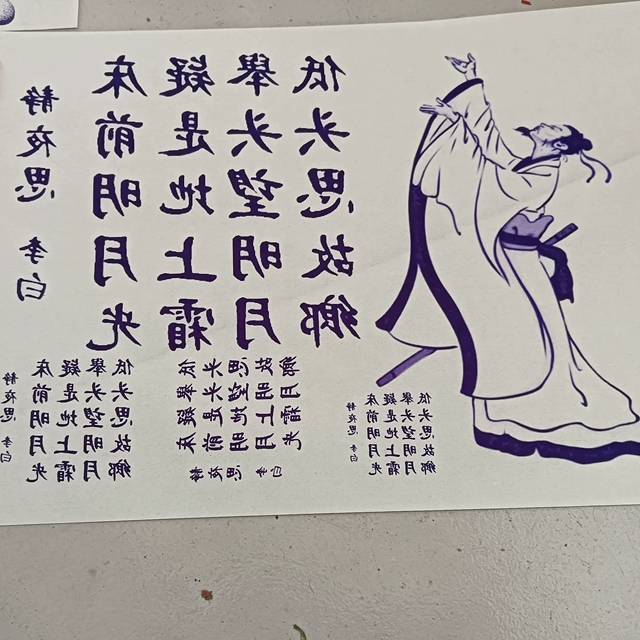 静夜思 李白
床前明月光
疑是地上霜
舉头望明月
低头思故鄉
静夜思 李白
床前明月光
疑是地上霜
舉头望明月
低头思故鄉
静夜思 李白
床前明月光
疑是地上霜
舉头望明月
低头思故鄉
静夜思 李白
床前明月光
疑是地上霜
舉头望明月
低头思故鄉